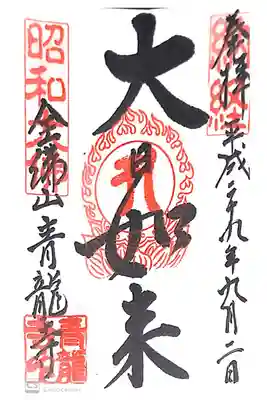 奉拝 平成二九年九月二日
大日如来
全佛山青龍寺
昭和
青龍